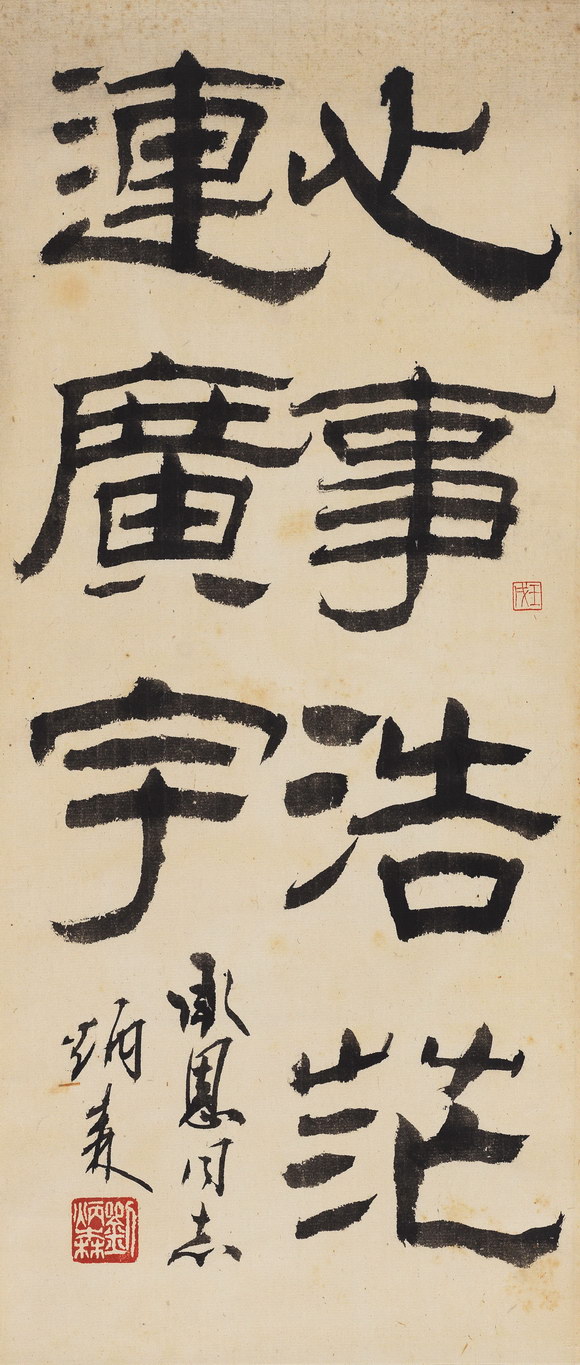 壬戌
心事浩茫
連廣宇
承恩同志
炳森
劉炳森